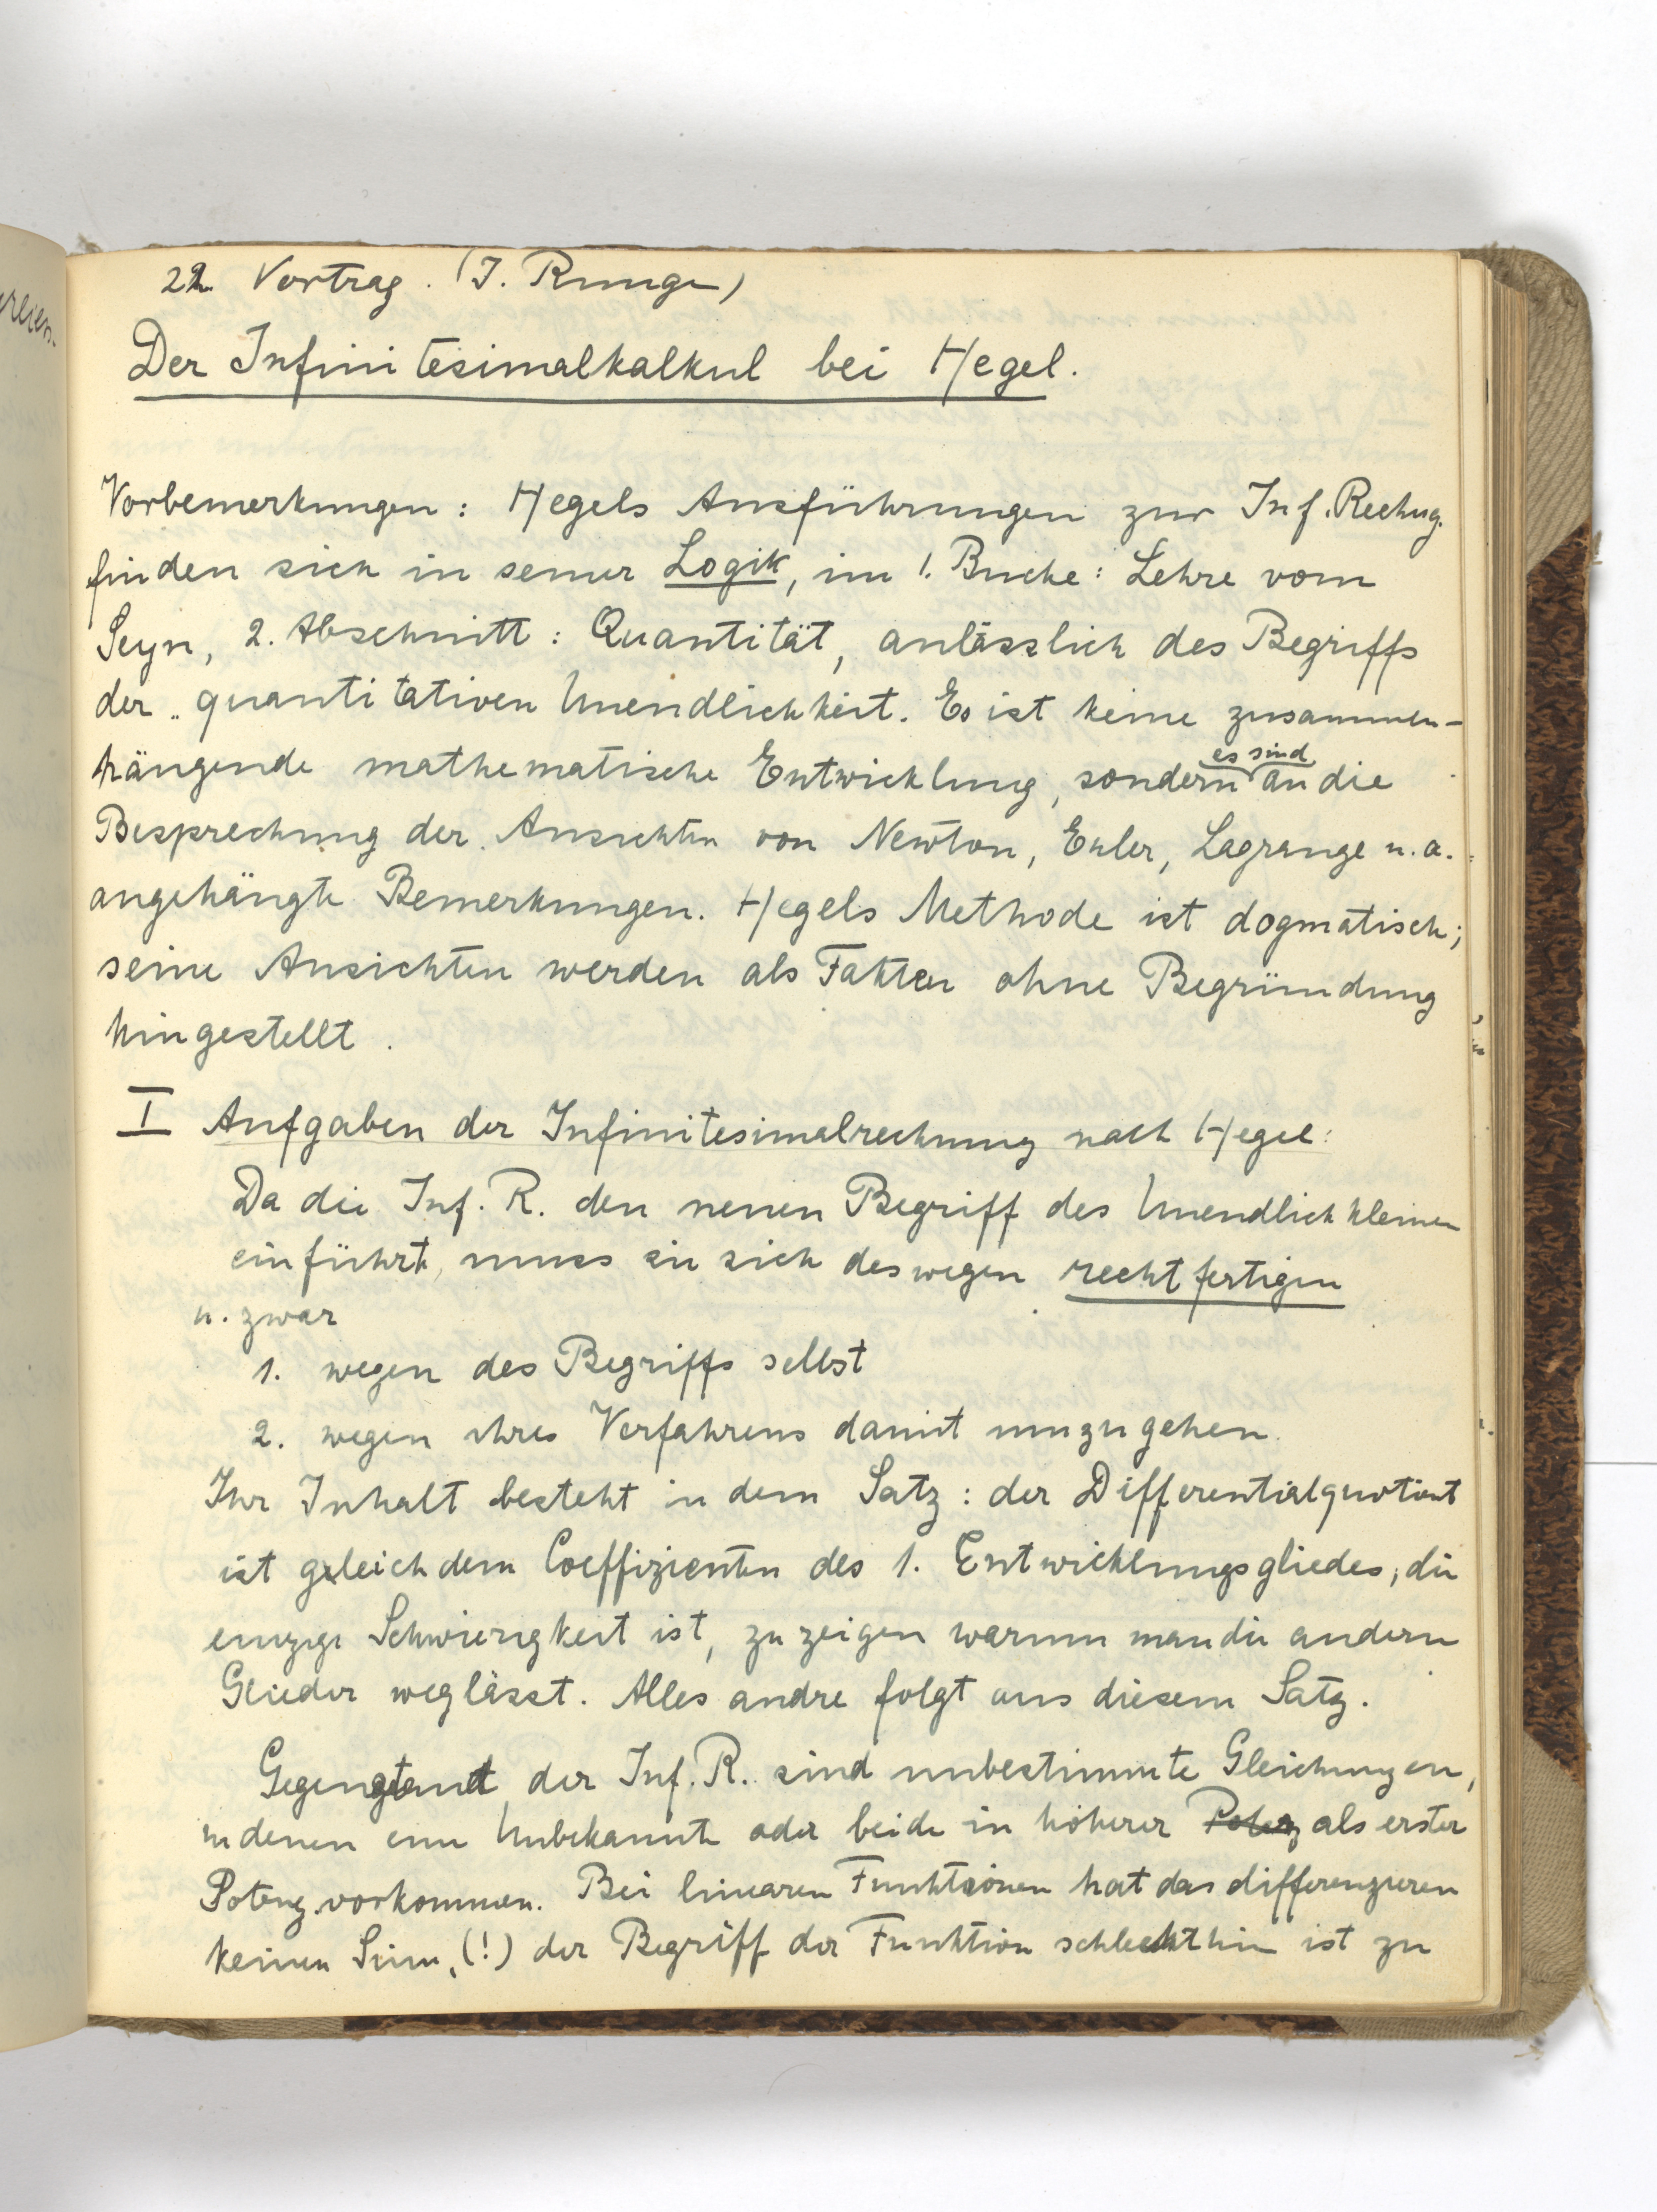 22. Vortrag. (I. Runge)
Der Infinitesimalkalkul bei Hegel.
Vorbemerkungen: Hegels Ausführungen zur Inf. Rechng.
finden sich in seiner Logik, im 1. Buche: Lehre vom
Seyn, 2. Abschnitt: Quantität, anlässlich des Begriffs
der quantitativen Unendlichkeit. Es ist keine zusammen-
hängende mathematische Entwicklung, sondern es sind an die
Besprechung der Ansichten von Newton, Euler, Lagrange u. a.
angehängte Bemerkungen. Hegels Methode ist dogmatisch;
seine Ansichten werden als Fakten ohne Begründung
hingestellt.
I Aufgaben der Infinitesimalrechnung nach Hegel:
Da die Inf. R. den neuen Begriff des Unendlichkleinen
einführt, muss sie sich deswegen rechtfertigen
u. zwar
1. wegen des Begriffs selbst
2. wegen ihres Verfahrens damit umzugehen.
Ihr Inhalt besteht in dem Satz: der Differentialquotient
ist gleich dem Coeffizienten des 1. Entwicklungsgliedes; die
einzige Schwierigkeit ist, zu zeigen warum man die andern
Glieder weglässt. Alles andre folgt aus diesem Satz.
Gegenstand der Inf. R. sind unbestimmte Gleichungen,
in denen eine Unbekannte oder beide in höherer Potenz als erster
Potenz vorkommen. Bei linearen Funktionen hat das differenzieren
keinen Sinn, (!) der Begriff der Funktion schlechthin ist zu